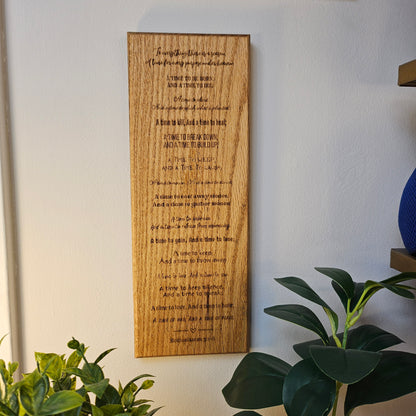 To everything there is a season,
A time for every purpose under heaven:
A TIME TO BE BORN,
AND A TIME TO DIE;
A time to plant,
A time to kill, And a time to heal;
A TIME TO BREAK DOWN,
AND A TIME TO BUILD UP;
A TIME TO WEEP,
AND A TIME TO LAUGH;
A time to cast away stones,
And a time to gather stones;
A time to embrace,
And a time to refrain from embracing;
A time to gain, And a time to lose;
A time to keep,
And a time to throw away;
A time to keep silence,
And a time to speak;
A time to love, And a time to hate;
A time of war, And a time of peace.